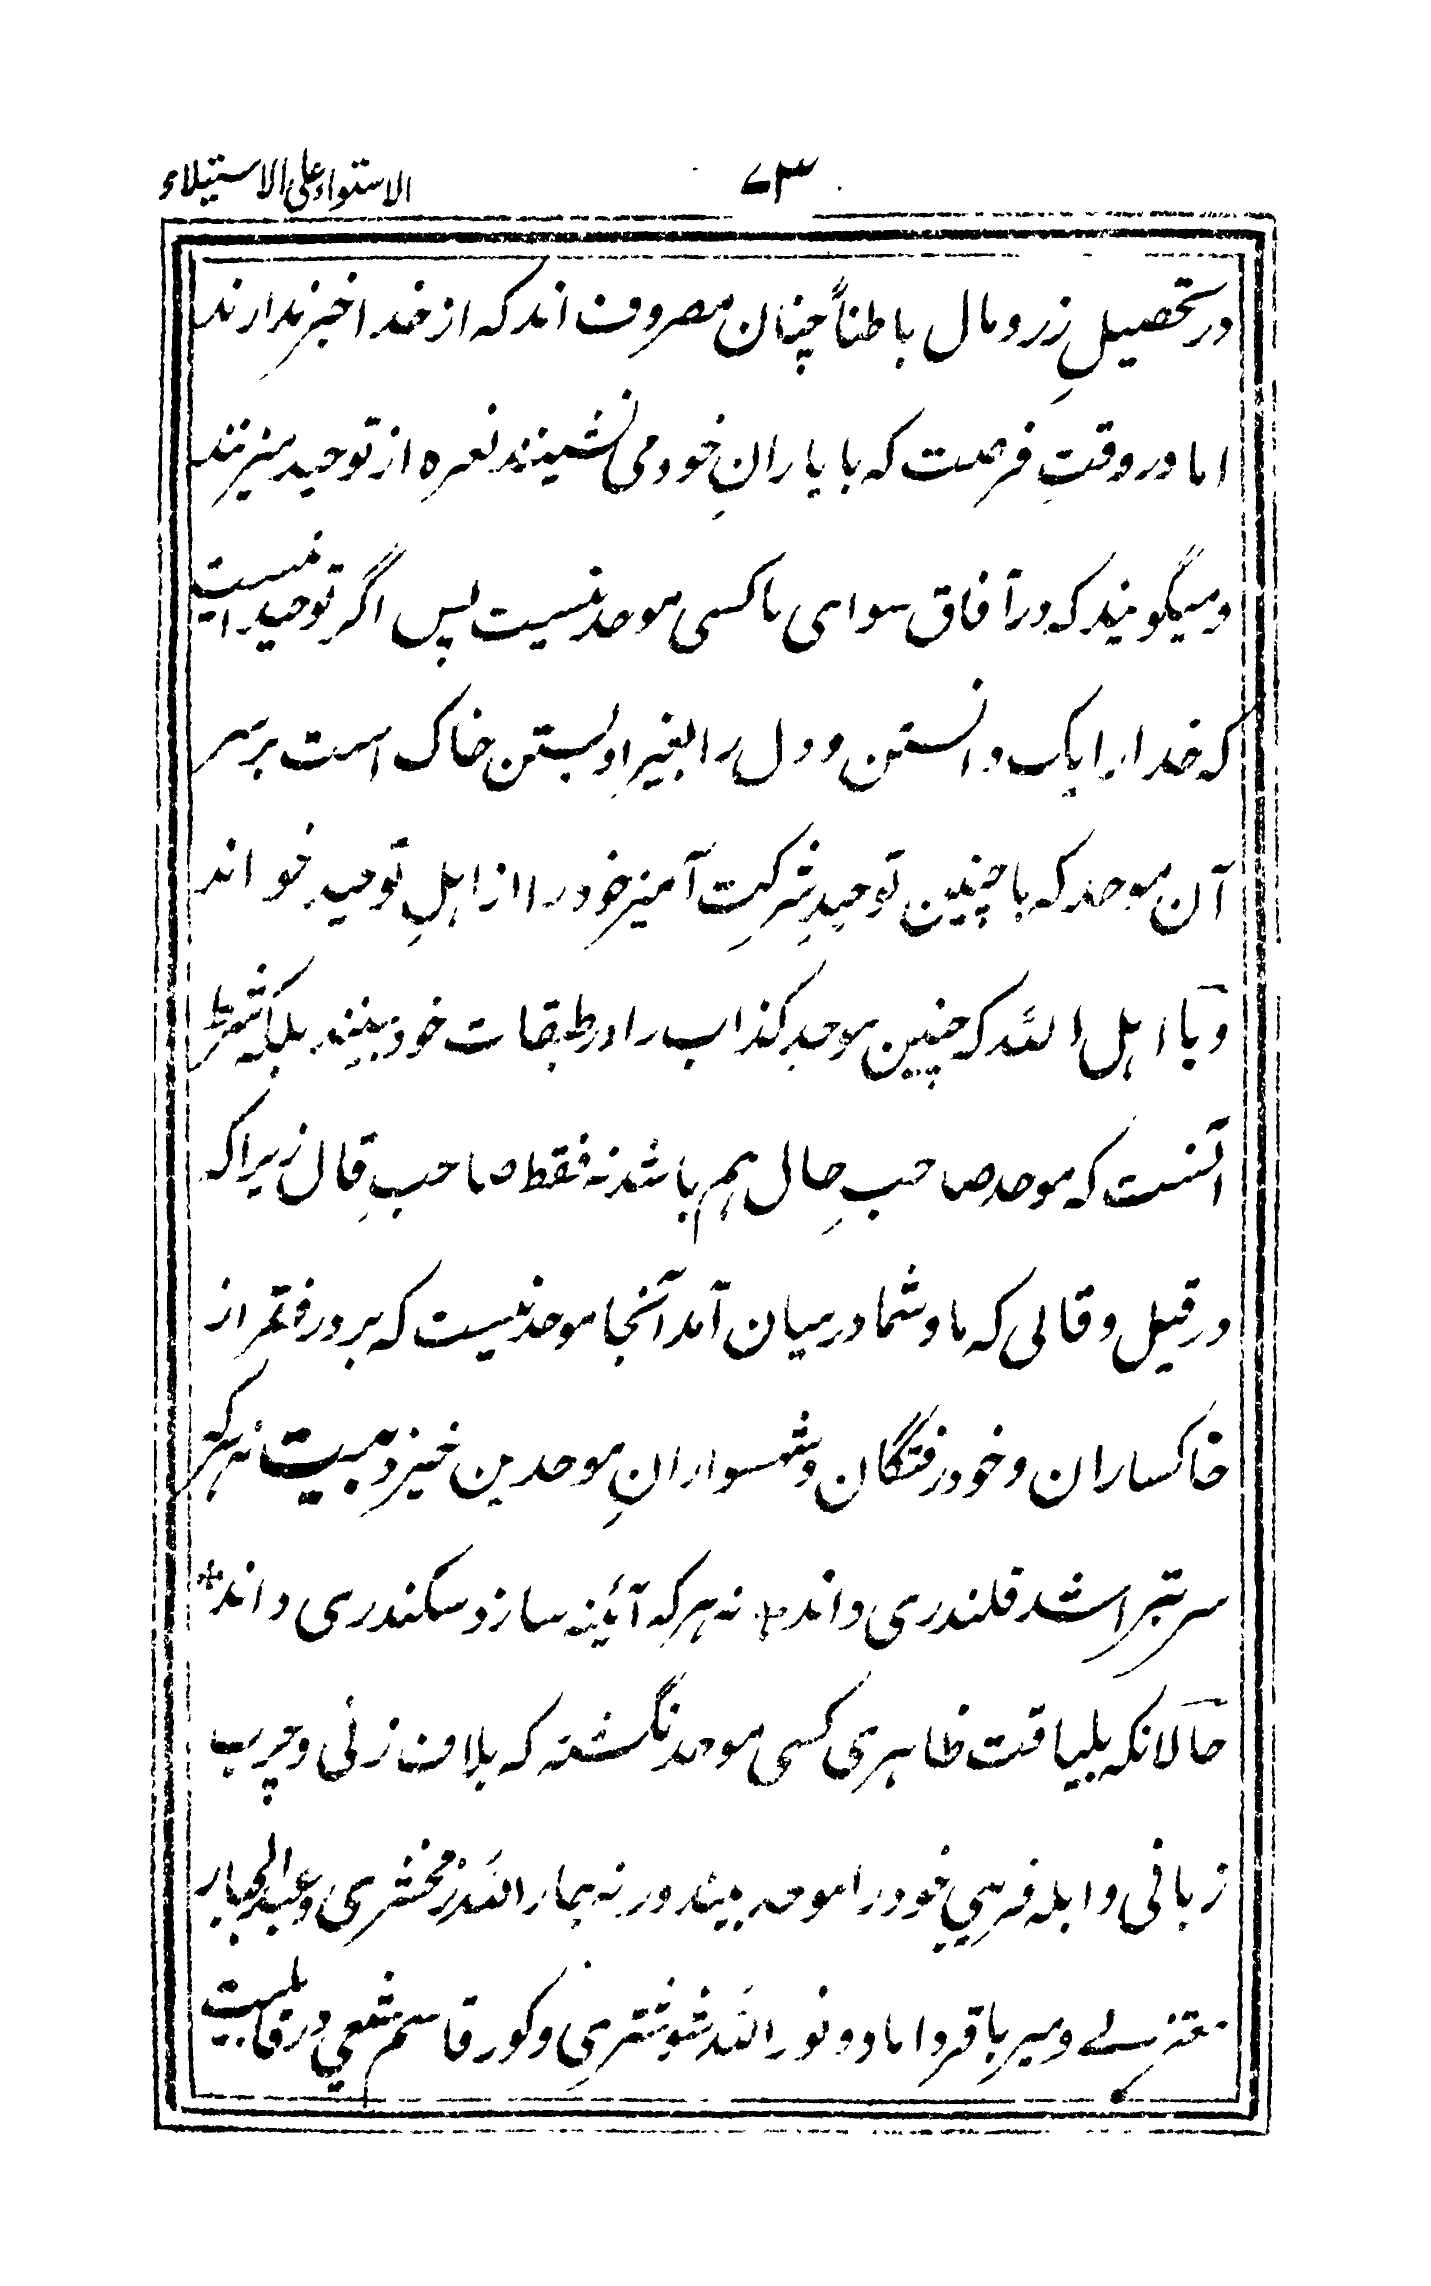 ٧٣ الاستواء علی الاستیلاء
در تحصیلِ زر و مال باطناً چنان مصروف اند که از خدا خبر ندارند
اما در وقتِ فرصت که با یارانِ خود می نشینند نعره از توحید میزنند
و میگویند که در آفاق سوای ما کسی موحد نیست پس اگر توحید اینست
که خدا را یک دانستن و دل را بغیرِ او بستن خاک است بر سر
آن موحد که با چنین توحیدِ شرکت آمیز خود را از اهلِ توحید خواند
و یا اهل الله که چنین موحد کذاب را در طبقات خود بینند بلکه شرط
آنست که موحد صاحبِ حال هم باشد نه فقط صاحبِ قال زیرا که
در قیل و قالی که ما و شما درمیان آمد آنجا موحد نیست که بر دو رفتم از
خاکساران و خود رفتگان و شهسوارانِ موحدین خیزد بیت نه هر که
سر بتراشد قلندری داند * نه هر که آئینه سازد سکندری داند *
حالانکه بلیاقت ظاهری کسی موحد نگشته که بلاف زنی و چرب
زبانی و ابله فریبی خود را موحد بیند ورنه بجار الله زمخشری و عبد الجبار
معتزلے و میر باقر داماد و نور الله شوشتری و کور قاسم شیعی در قابلیت